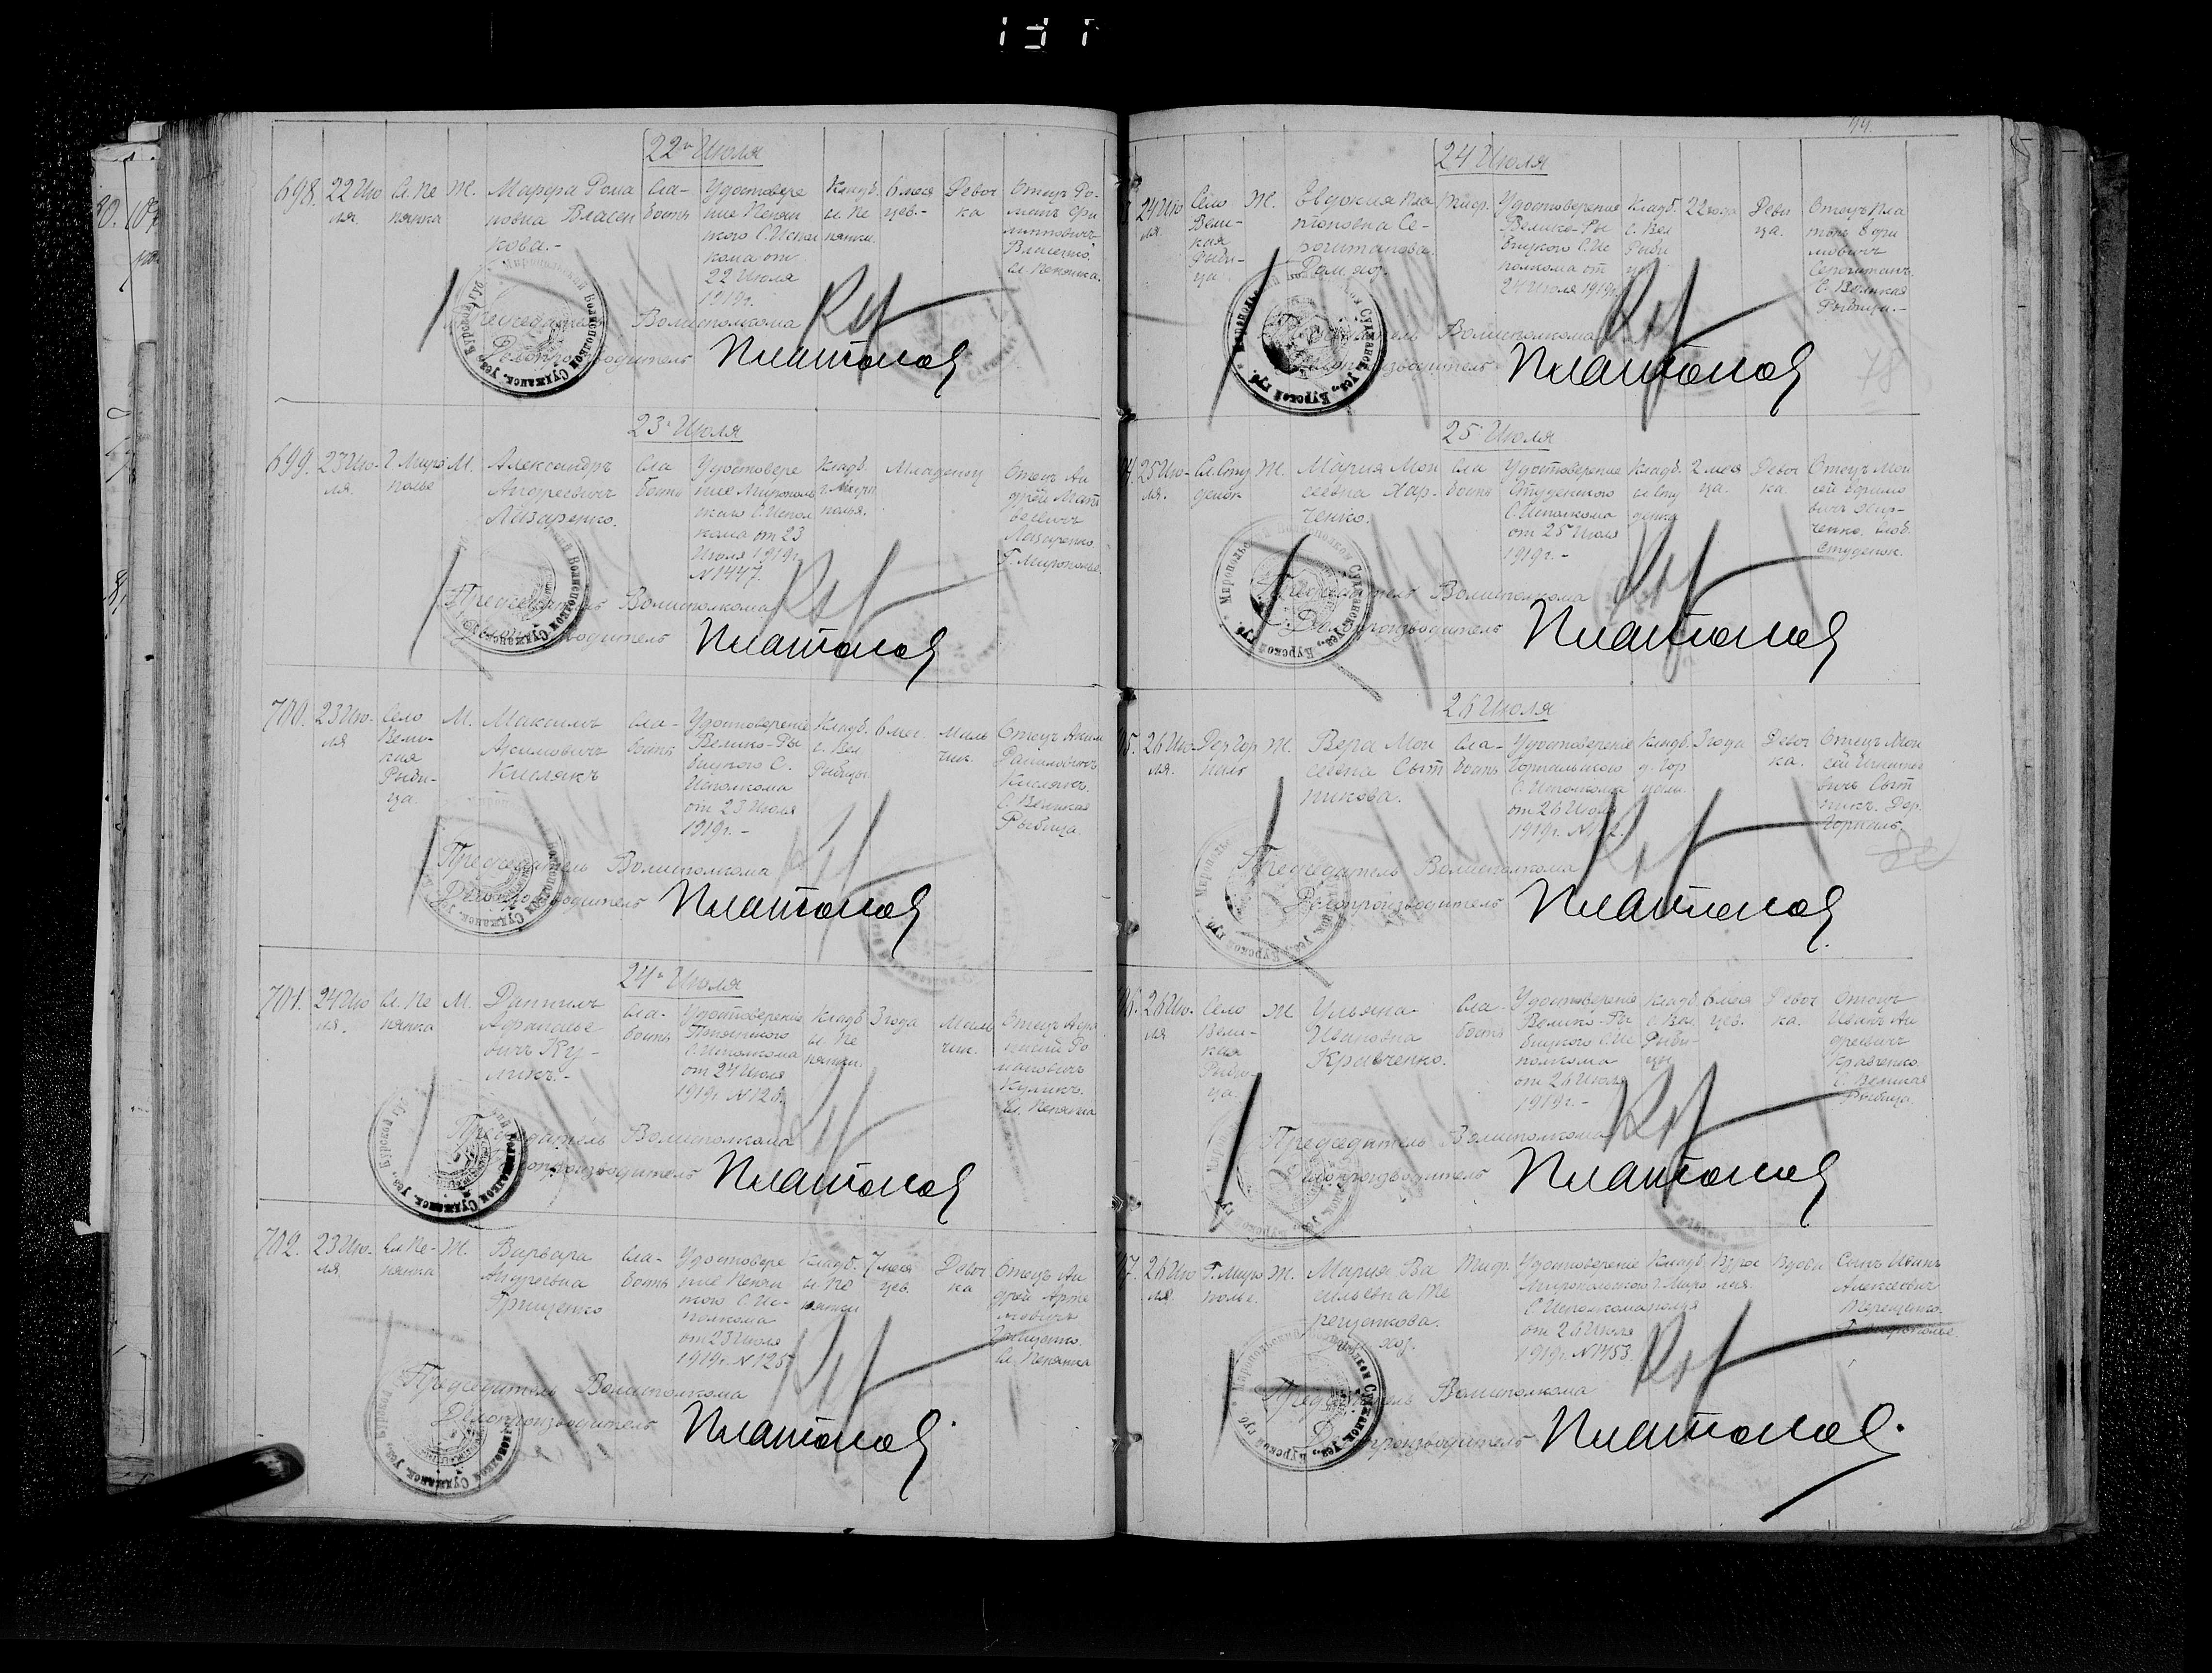 22го Июля
698.
22 Ию
ля.
Сл. Пе
нянка
Ж.
Марфа Рома
новна Власен
кова.-
Сла-
бость
Удостовере
ние Пенян
ского С. Испол
кома от
22 Июля
1919г.
Кладб.
сл. Пе
нянки.
6 меся
цев.-
Девоч
ка
Отец Ро-
ман
Сл. Пенянка.
Председатель Волисполкома
Делопроизводитель Платонов
23го Июля
699.
23 Ию-
ля.
Г. Миро
полье
М.
Александр
Андреевич
Лазаренко.
Сла
бость
Удостовере
ние Мирополь
ского С. Испол
кома от 23
Июля 1919г.
N 1447.
Кладб.
г. Миро
полья.
Младенец
Отец Ан
дрей Мат
веевич
Лазаренко.
Г. Мирополье.
Председатель Волисполкома
Делопроизводитель Платонов
700.
23 Ию-
ля
Село
Вели-
кая
Рыби-
ца.
М.
Максим
Акимович
Кисляк
Сла-
бость
Удостоверение
Велико-Ры
бицкого С.
Исполкома
от 23 Июля
1919г. -
Кладб.
с. Вел
Рыбицы
6 мес.
Маль
чик.
Отец Аким
Данилович
Кисляк.
С. Великая
Рыбица.
Председатель Волисполкома
Делопроизводитель Платонов
24го Июля
701.
24 Ию
ля.
Сл. Пе
нянка
М.
Даниил
Афанасье
вич Ку-
лик.-
Сла-
бость
Удостоверение
Пенянского
С. Исполкома
от 24 Июля
1919г. N 128.
Кладб
сл. Пе
нянки.
3 года
Маль
чик.
Отец Афа
насий Ро
манович
Кулик.
Сл. Пенянка
Председатель Волисполкома
Делопроизводитель Платонов
702.
23 Ию-
ля.
Сл. Пе-
нянка
Ж.
Варвара
Андреевна
Грищенко
Сла-
бость
Удостовере
ние Пенян
ского С. Ис-
полкома
от 23 Июля
1919г. N 125
Кладб.
сл. Пе
нянки
7 меся
цев.
Девоч
ка
Отец Ан
дрей Арте
мович
Грищенко.
Сл. Пенянка
Председатель Волисполкома
Делопроизводитель Платонов
44
24 Июля
24 Ию
ля.
Село
Вели-
кая
Рыби-
ца
Ж.
Евдокия Пла
тоновна Се-
Дом. хоз.
Тиф.
Удостоверение
Велико-Ры
бицкого С. Ис
полкома от
24 Июля 1919г.
Кладб.
с. Вел
Рыби
цы
22 года
Деви
ца.
Отец Пла
тон
С. Великая
Рыбица.-
Председатель Волисполкома
Делопроизводитель Платонов
78
25 Июля
25 Ию-
ля.
Сл. Сту
денок
Ж.
Мария Мои
сеевна Хар-
ченко.
Сла
бость
Удостоверение
Студенского
С. Исполкома
от 25 Июля
1919г. -
Кладб.
сл. Сту
денка
2 меся
ца.
Девоч
ка.
Отец Мои
сей Ефимо
вич Хар-
ченко. Слоб.
Студенок.
Председатель Волисполкома
Делопроизводитель Платонов
26 Июля
26 Ию
ля.
Дер. Гор
наль
Ж.
Вера Мои
сеевна Сыт
никова.
Сла-
бость
Удостоверение
Горнальского
С. Исполкома
от 26 Июля
1919г.
Кладб.
д. Гор
нали.
3 года
Девоч
ка.
Отец Мои
сей Игнатье
вич Сыт
ник. Дер.
Горналь.
Председатель Волисполкома
Делопроизводитель Платонов
26 Ию.
ля
Село
Вели-
кая
Рыби-
ца.
Ж
Ульяна
Ивановна
Кравченко.
Сла-
бость
Удостоверение
Велико-Ры
бицкого С. Ис
полкома
от 26 Июля
1919г. -
Кладб.
с. Вел.
Рыби-
цы
6 меся
цев.
Девоч
ка.
Отец
Иван Ан
дреевич
Кравченко.
С. Великая
Рыбица.
Председатель Волисполкома
Делопроизводитель Платонов
26 Ию
ля
Г. Миро
полье.
Ж.
Мария Ва
сильевна Те
хоз.
Тиф.
Удостоверение
Миропольского
С. Исполкома
от 26 Июля
1919г. N 1453.
Кладб.
г. Миро
полья
Вдова
Сын Иван
Алексеевич
Терещенко.
Г. Мирополье.
Председатель Волисполкома
Делопроизводитель Платонов.